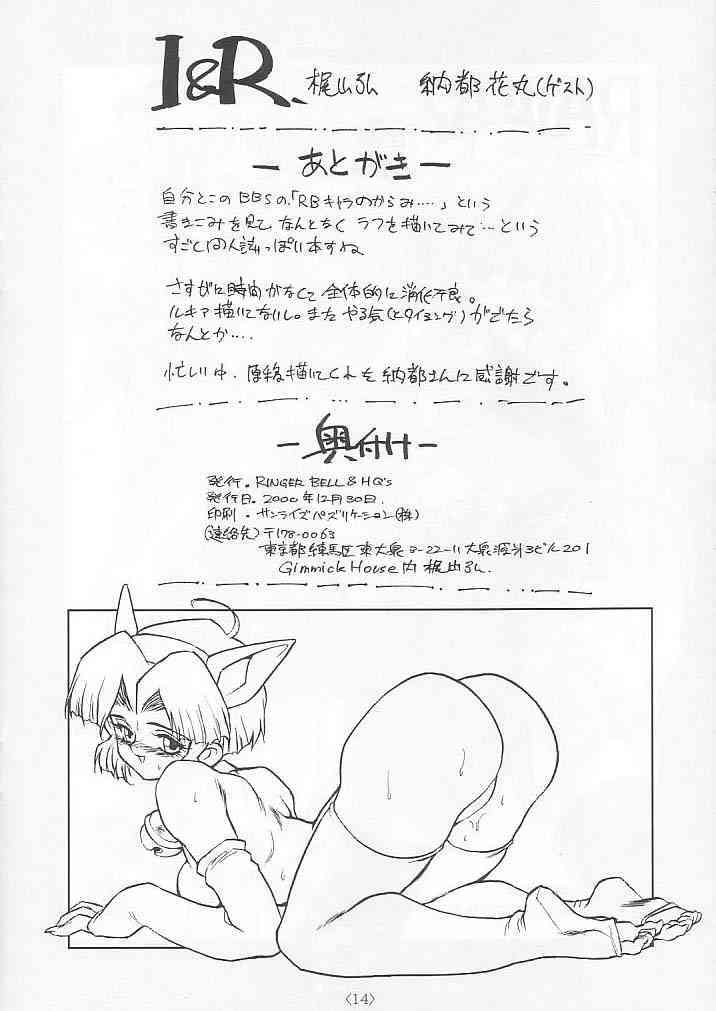 I&R、 梶山弘 納都花丸(ゲスト)
ーあとがきー
自分とこのBBSの「RBキャラのからみ‥‥」という
書きこみを見て、なんとなくラフを描いてみて‥‥という
すごく同人誌っぽい本ですね
さすがに時間がなくて全体的に消化不良。
ルキア描いてないし。また やる気(とタイミング)がでたら
なんとか‥‥
忙しい中、原稿描いてくれた納都さんに感謝です。
ー奥付けー
発行。RINGER BELL & HQ's
発行日。2000年12月30日.
印刷・サンライズパブリケーション(株)
(連絡先)〒178-0063
東京都練馬区東大泉3-22-11大泉 3ビル201
Gimmick House内 梶山弘.
〈14〉